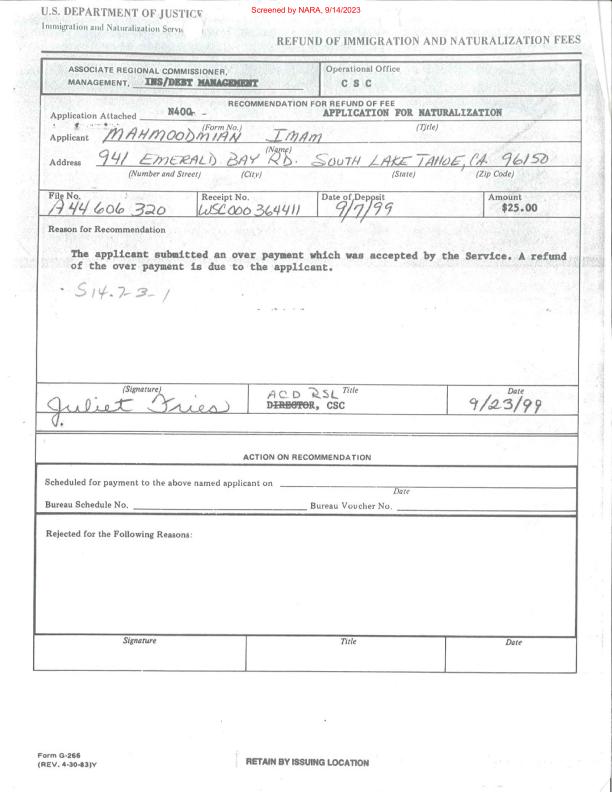 Screened by NARA, 9/14/2023
U.S. DEPARTMENT OF JUSTICE
Immigration and Naturalization Servi
REFUND OF IMMIGRATION AND NATURALIZATION FEES
ASSOCIATE REGIONAL COMMISSIONER,
MANAGEMENT, INS/DEBT MANAGEMENT
Operational Office
C S C
RECOMMENDATION FOR REFUND OF FEE
Application Attached N400 - APPLICATION FOR NATURALIZATION
(Form No.) (Title)
Applicant MAHMOODMIAN IMAM
(Name)
Address 941 EMERALD BAY RD. SOUTH LAKE TAHOE, CA. 96150
(Number and Street) (City) (State) (Zip Code)
File No. Receipt No. Date of Deposit Amount
A44 606 320 WSC000364411 9/7/99 $25.00
Reason for Recommendation
The applicant submitted an over payment which was accepted by the Service. A refund
of the over payment is due to the applicant.
S14.2-3-1
(Signature) Title Date
Juliet Fries ACD RSL 9/23/99
J. DIRECTOR, CSC
ACTION ON RECOMMENDATION
Scheduled for payment to the above named applicant on
Date
Bureau Schedule No. Bureau Voucher No.
Rejected for the Following Reasons:
Signature Title Date
Form G-266
(REV. 4-30-83)Y
RETAIN BY ISSUING LOCATION